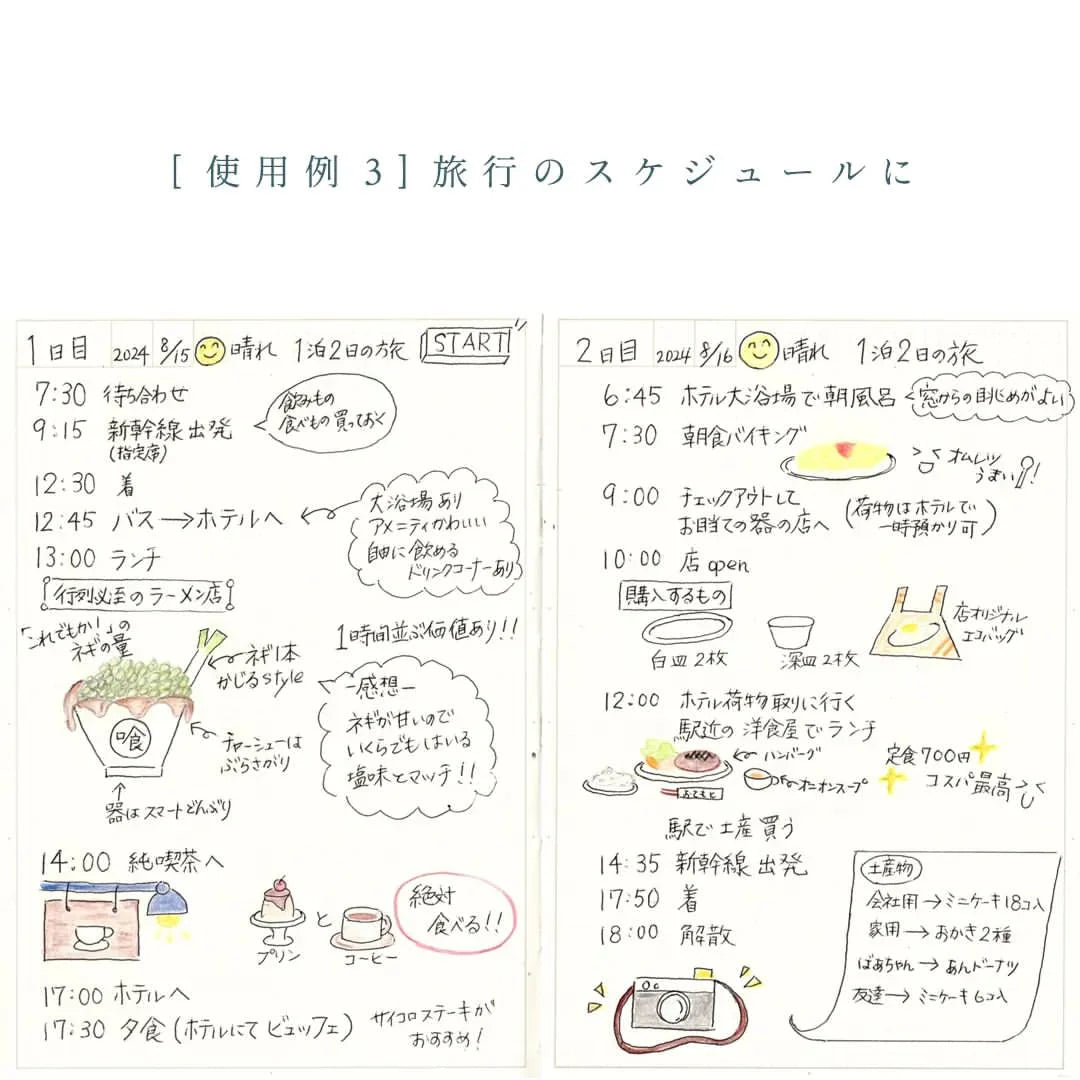 [使用例3]旅行のスケジュールに
1日目 2024 8/15 晴れ 1泊2日の旅 START
7:30 待ち合わせ
9:15 新幹線出発
(指定席)
飲みもの
食べもの買っておく
12:30 着
12:45 バス→ホテルへ
大浴場あり
アメニティかわいい
自由に飲める
ドリンクコーナーあり
13:00 ランチ
行列必至のラーメン店
「これでもか!」の
ネギの量
ネギ1本
かじるstyle
喰
チャーシューは
ぶらさがり
器はスマートどんぶり
1時間並ぶ価値あり!!
-感想-
ネギが甘いので
いくらでもはいる
塩味とマッチ!!
14:00 純喫茶へ
プリン
と
コーヒー
絶対
食べる!!
17:00 ホテルへ
17:30 夕食(ホテルにてビュッフェ)
サイコロステーキが
おすすめ!
2日目 2024 8/16 晴れ 1泊2日の旅
6:45 ホテル大浴場で朝風呂
窓からの眺めがよい
7:30 朝食バイキング
オムレツ
うまい!
9:00 チェックアウトして
お目当ての器の店へ
(荷物はホテルで
一時預かり可)
10:00 店open
購入するもの
白皿2枚
深皿2枚
店オリジナル
エコバッグ
12:00 ホテル荷物取りに行く
駅近の洋食屋でランチ
ハンバーグ
オニオンスープ
おてもと
定食700円
コスパ最高
駅で土産買う
14:35 新幹線出発
17:50 着
18:00 解散
土産物
会社用→ミニケーキ18コ入
家用→おかき2種
ばあちゃん→あんドーナツ
友達→ミニケーキ6コ入